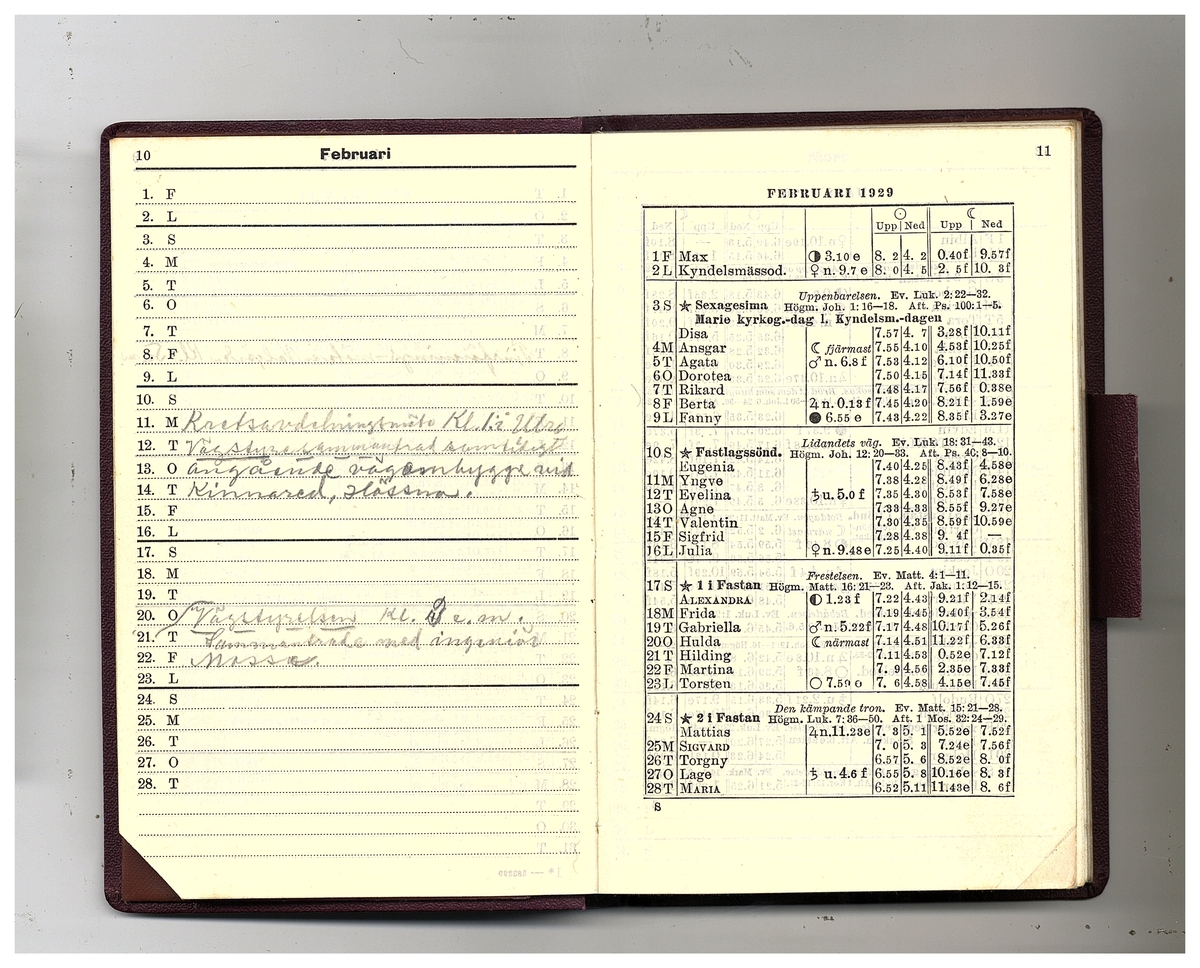 10 Februari
1. F
2. L
3. S
4. M
5. T
6. O
7. T
8. F
9. L
10. S
11. M Kretsavdelningsmöte Kl. 1
12. T Vägstyre sammanträd samtidigt
13. O angående vägombygge vid
14. T Kinnared, Hössna.
15. F
16. L
17. S
18. M
19. T
20. O Vägstyrelsen Kl. 3 e.m.
21. T Sammanträde med ingeniör
22. F
23. L
24. S
25. M
26. T
27. O
28. T
11
FEBRUARI 1929
☉ ☾
Upp Ned Upp Ned
1 F Max ◑ 3.10 e 8. 2 4. 2 0.40f 9.57f
2 L Kyndelsmässod. ♀ n. 9.7 e 8. 0 4. 5 2. 5f 10. 3f
Uppenbarelsen. Ev. Luk. 2: 22—32.
3 S ★ Sexagesima Högm. Joh. 1: 16—18. Aft. Ps. 100: 1—5.
Marie kyrkog.-dag l. Kyndelsm.-dagen
Disa 7.57 4. 7 3.28f 10.11f
4 M Ansgar ☾ fjärmast 7.55 4.10 4.53f 10.25f
5 T Agata ♂ n. 6.8 f 7.53 4.12 6.10f 10.50f
6 O Dorotea 7.50 4.15 7.14f 11.33f
7 T Rikard 7.48 4.17 7.56f 0.38e
8 F Berta ♃ n. 0.13 f 7.45 4.20 8.21f 1.59e
9 L Fanny ● 6.55 e 7.43 4.22 8.35f 3.27e
Lidandets väg. Ev. Luk. 18: 31—43.
10 S ★ Fastlagssönd. Högm. Joh. 12: 20—33. Aft. Ps. 40: 8—10.
Eugenia 7.40 4.25 8.43f 4.58e
11 M Yngve 7.38 4.28 8.49f 6.28e
12 T Evelina ♄ u. 5.0 f 7.35 4.30 8.53f 7.58e
13 O Agne 7.33 4.33 8.55f 9.27e
14 T Valentin 7.30 4.35 8.59f 10.59e
15 F Sigfrid 7.28 4.38 9. 4f —
16 L Julia ♀ n. 9.48 e 7.25 4.40 9.11f 0.35f
Frestelsen. Ev. Matt. 4: 1—11.
17 S ★ 1 i Fastan Högm. Matt. 16: 21—23. Aft. Jak. 1: 12—15.
ALEXANDRA ◐ 1.23 f 7.22 4.43 9.21f 2.14f
18 M Frida 7.19 4.45 9.40f 3.54f
19 T Gabriella ♂ n. 5.22f 7.17 4.48 10.17f 5.26f
20 O Hulda ☾ närmast 7.14 4.51 11.22f 6.33f
21 T Hilding 7.11 4.53 0.52e 7.12f
22 F Martina 7. 9 4.56 2.35e 7.33f
23 L Torsten ○ 7.59 e 7. 6 4.58 4.15e 7.45f
Den kämpande tron. Ev. Matt. 15: 21—28.
24 S ★ 2 i Fastan Högm. Luk. 7: 36—50. Aft. 1 Mos. 32: 24—29.
Mattias ♃ n. 11.23e 7. 3 5. 1 5.52e 7.52f
25 M SIGVARD 7. 0 5. 3 7.24e 7.56f
26 T Torgny 6.57 5. 6 8.52e 8. 0f
27 O Lage ♄ u. 4.6 f 6.55 5. 8 10.16e 8. 3f
28 T MARIA 6.52 5.11 11.43e 8. 6f
S